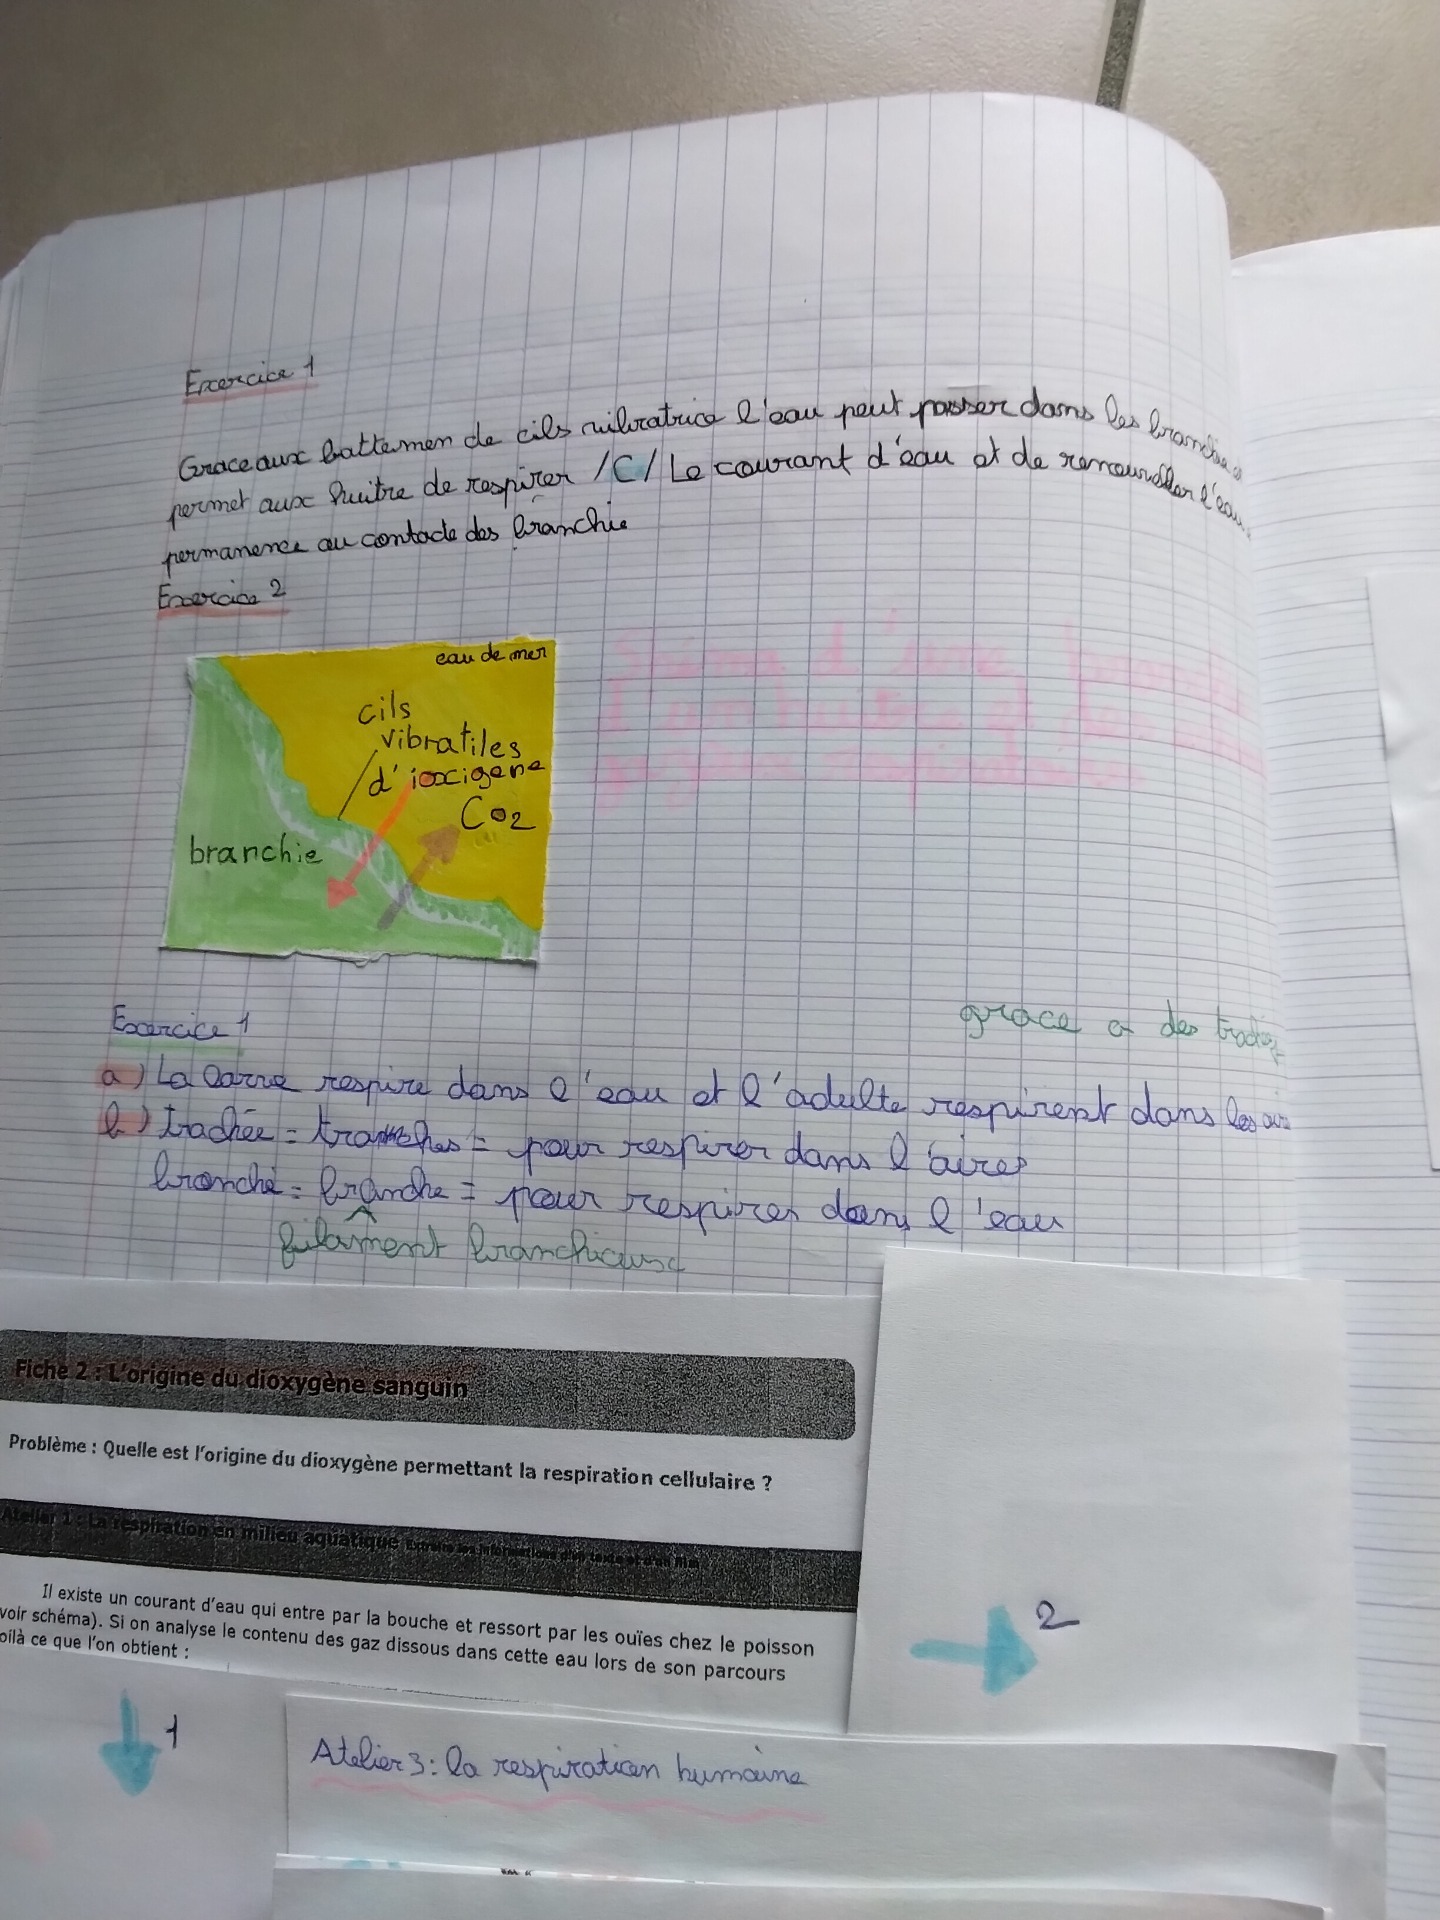 Exercice 1
Grace aux battemen de cils vibratrice l'eau peut passer dans les branchie
permet aux huitre de respirer /C/ Le courant d'éau et de renouveller l'eau
permanence au contacte des branchie
Exercice 2
eau de mer
cils
vibratiles
d'ioxcigene
CO2
branchie
Schéma d'une
d'une huitre et
Exercice 1
grace a des
a) La larve respire dans l'eau et l'adulte respirent dans les air
b) trachée = = pour respirer dans l'aires
branche = branche = pour respires dans l'eau
filâment branchieux
Fiche 2 : L'origine du dioxygène sanguin
Problème : Quelle est l'origine du dioxygène permettant la respiration cellulaire ?
Atelier 1 : La respiration en milieu aquatique Extraire les informations d'un texte et d'un film
Il existe un courant d'eau qui entre par la bouche et ressort par les ouïes chez le poisson
voir schéma). Si on analyse le contenu des gaz dissous dans cette eau lors de son parcours
oilà ce que l'on obtient :
2
1
Atelier 3 : la respiration humaine